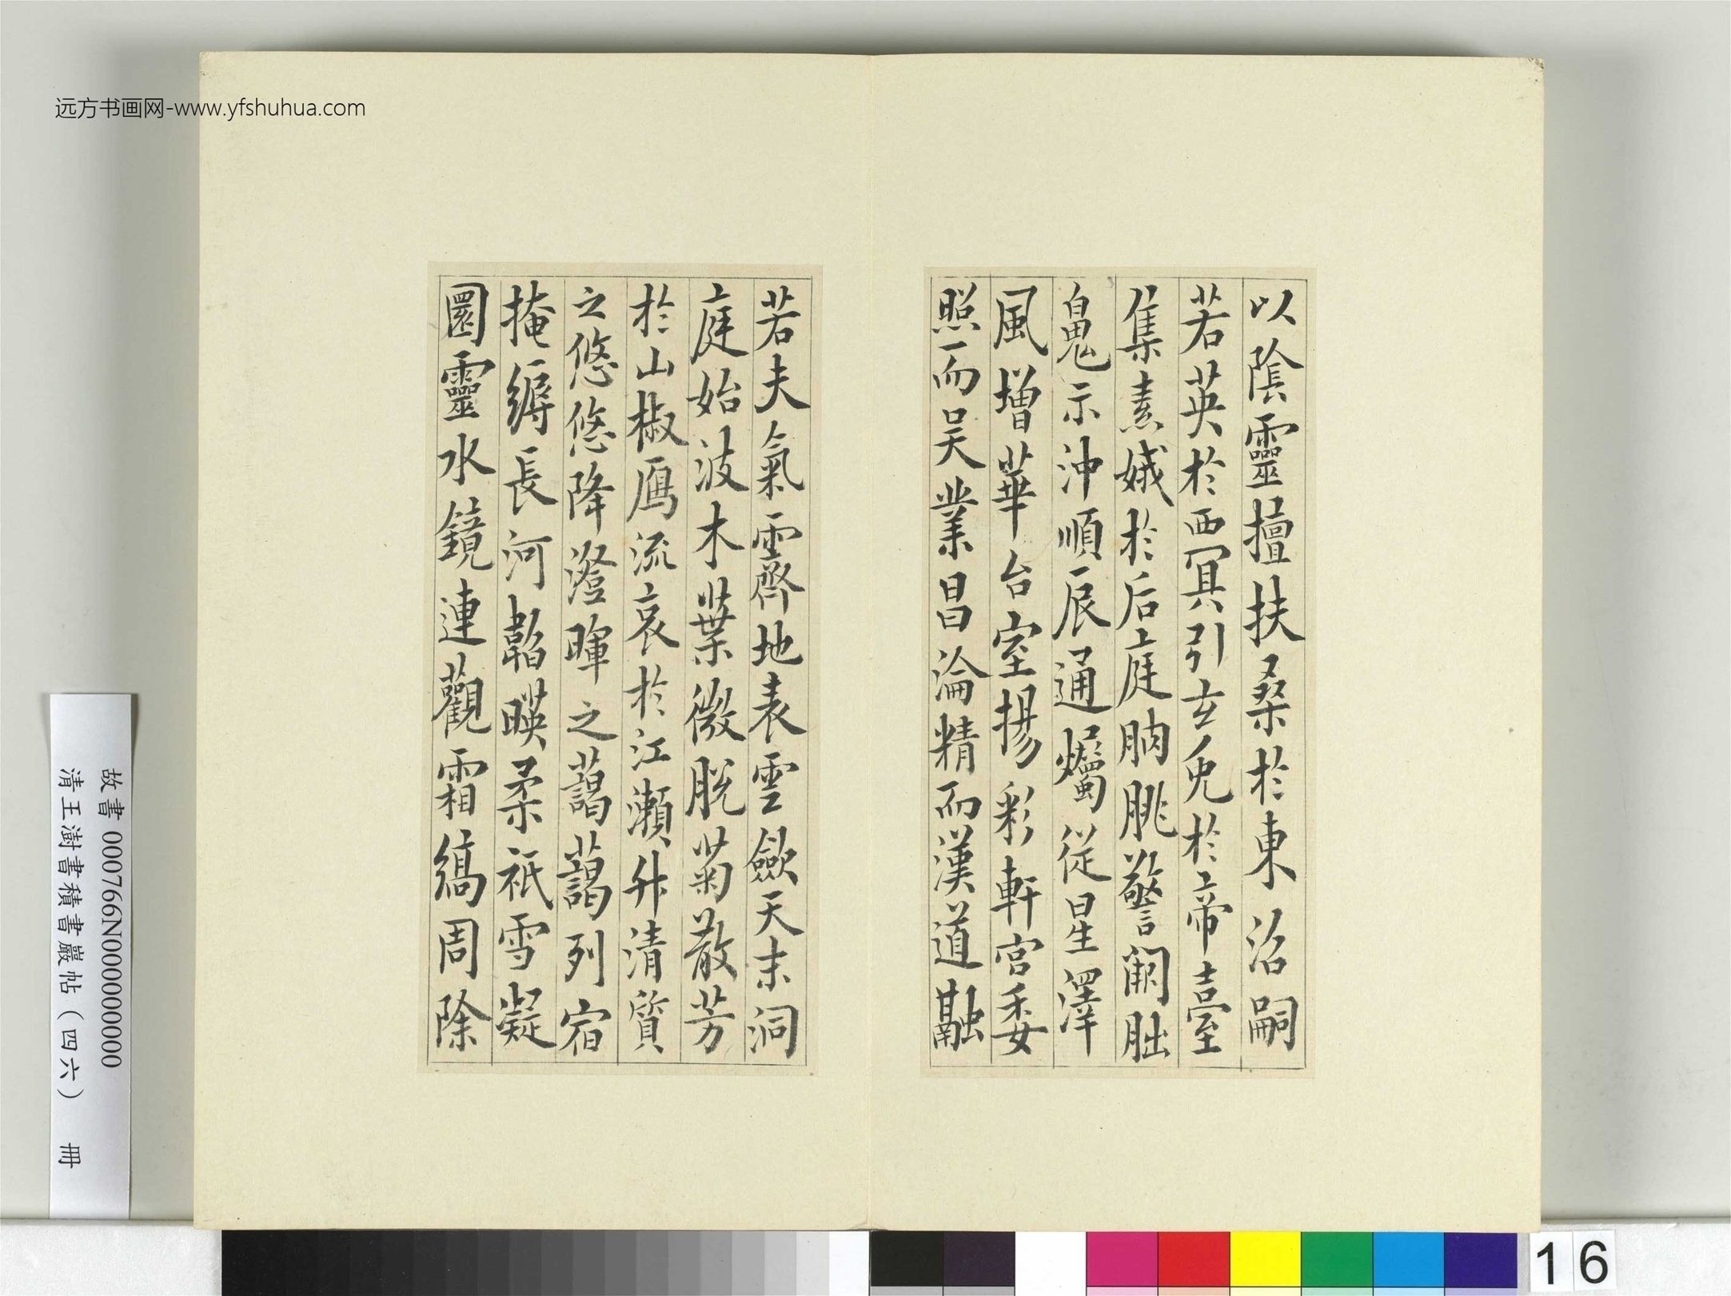 远方书画网-www.yfshuhua.com
以陰靈擅扶桑於東沼嗣
若英於西冥引玄兔於帝臺
集素娥於后庭朒朓警闕朏
魄示沖順辰通爥從星澤
風增華台室揚彩軒宮委
照而吴業昌淪精而漢道融
若夫氣霽地表雲歛天末洞
庭始波木葉微脱菊散芳
於山椒鴈流哀於江瀬升清質
之悠悠降澄暉之藹藹列宿
掩縟長河韜暎柔祇雪凝
圜靈水鏡連觀霜縞周除
故書 000766N000000000
清王澍書積書巖帖（四六） 冊
16